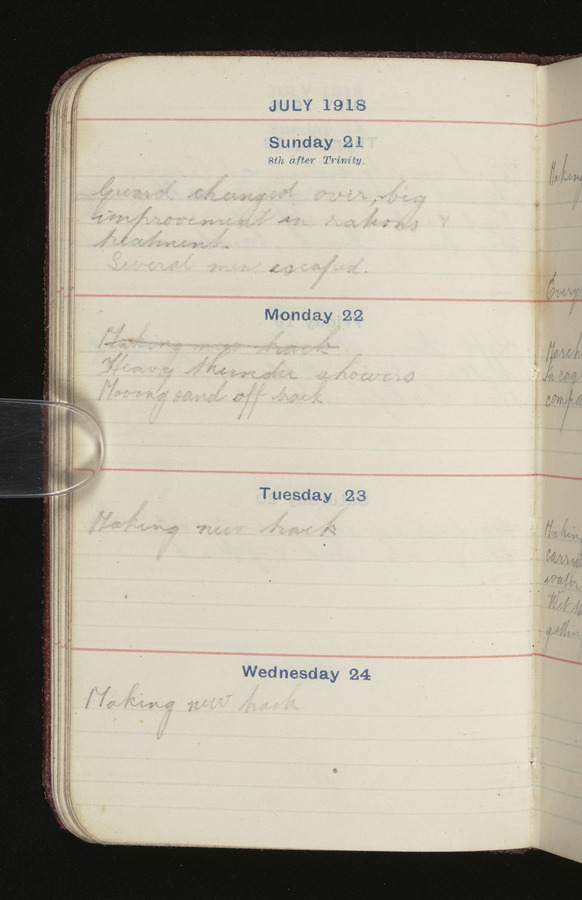 JULY 1918
Sunday 21
8th after Trinity.
Guard changed over, big
improvement in rations &
treatment.
Several men escaped.
Monday 22
Making new track
Heavy thunder showers
Moving sand off track
Tuesday 23
Making new track
Wednesday 24
Making new track